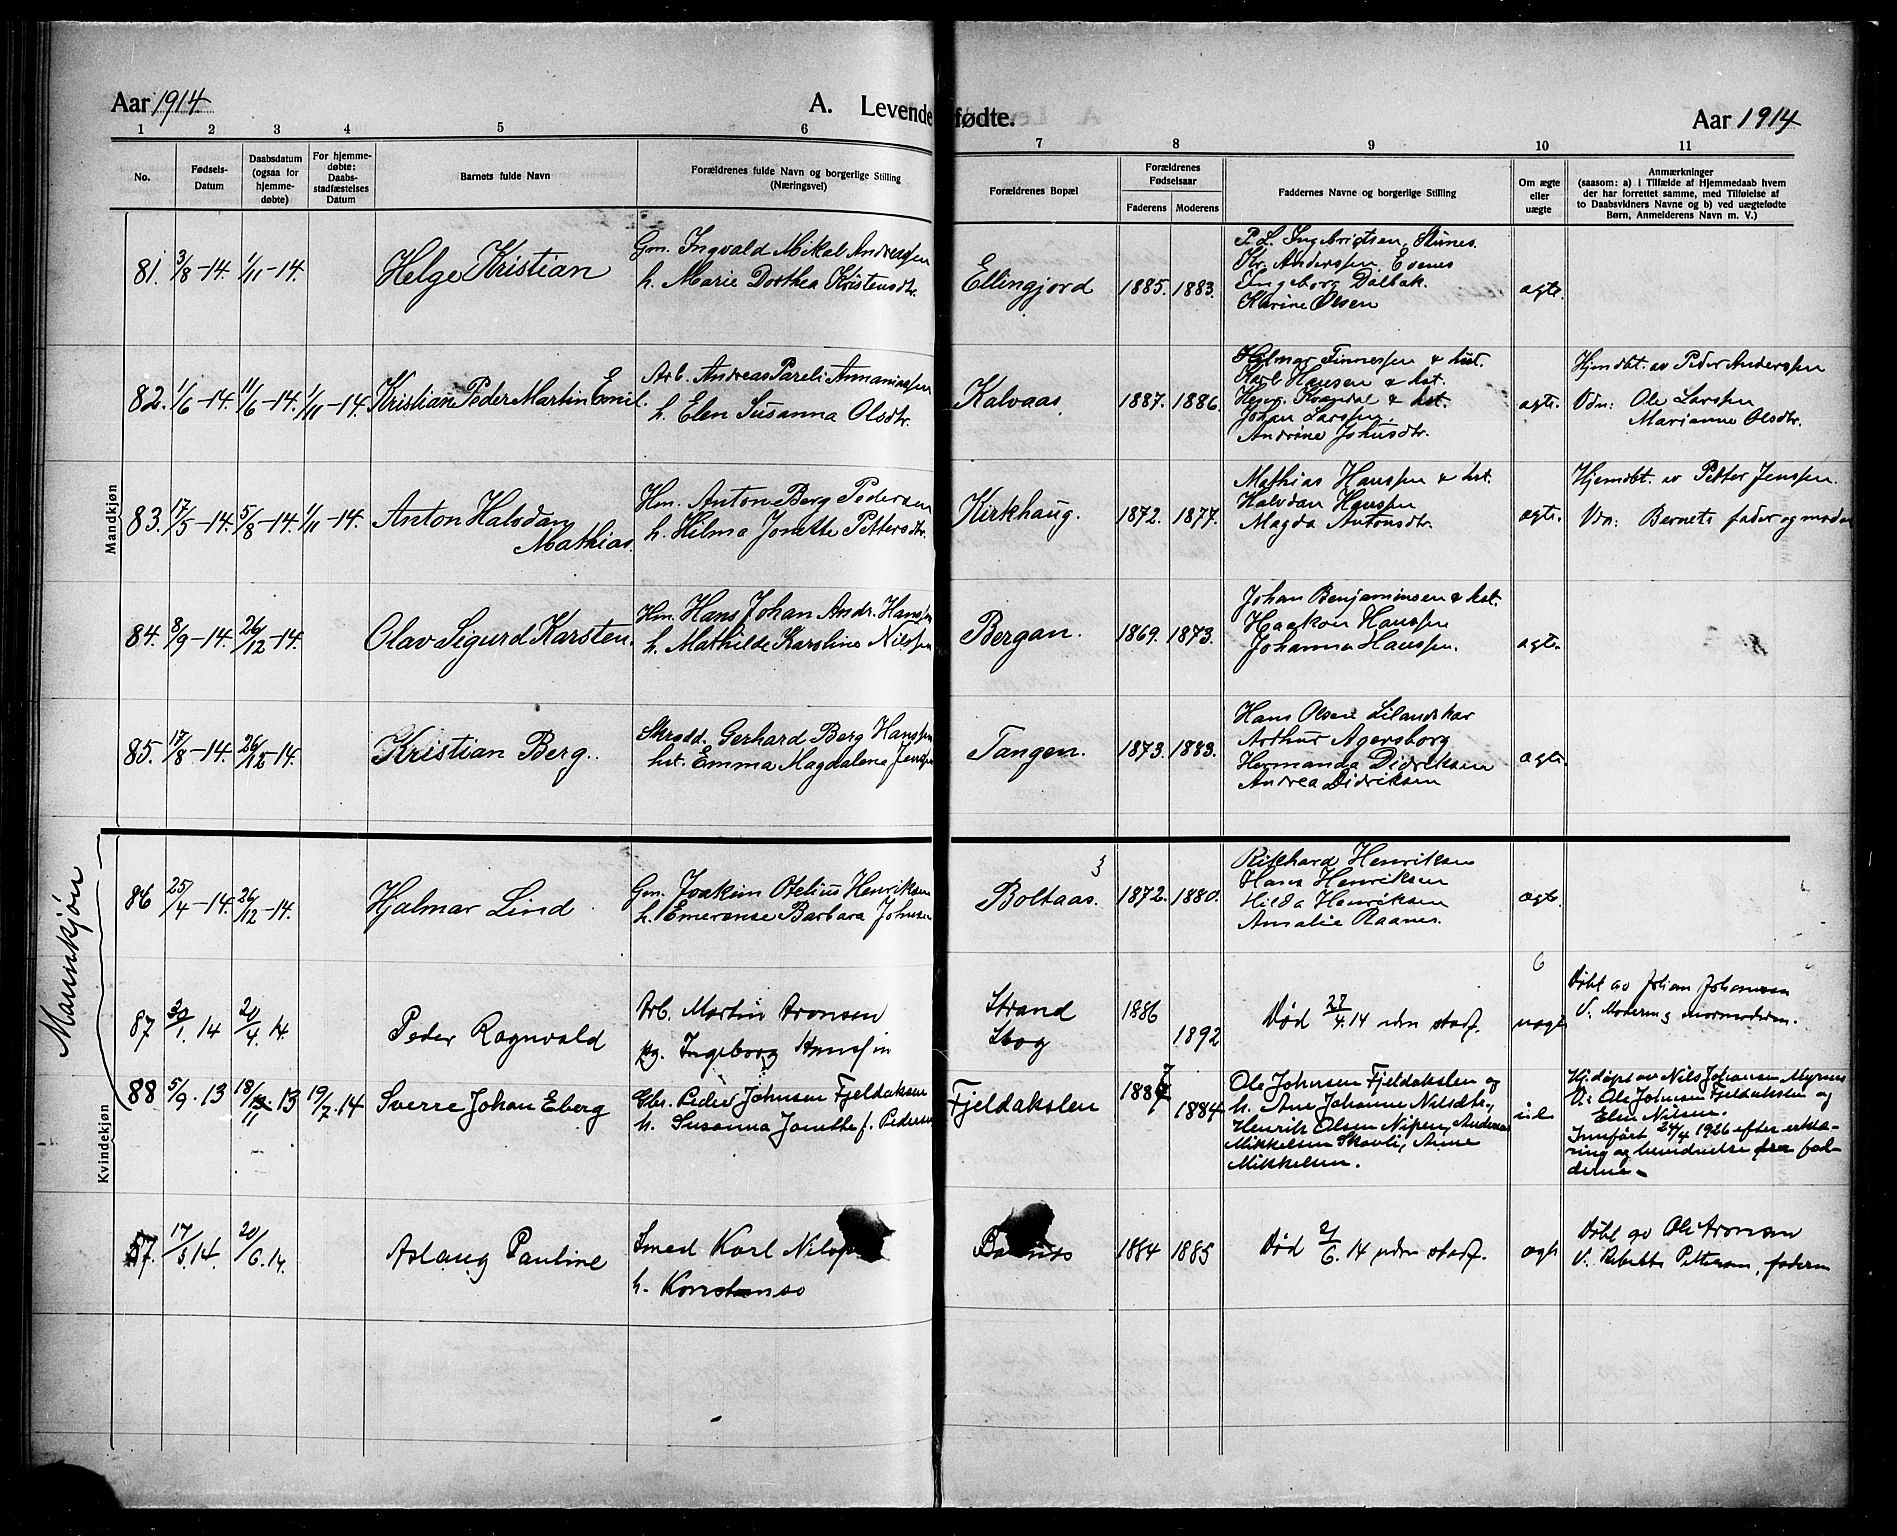 Aar 1914.
A. Levendefødte.
Aar 1914
1 2 3 4 5 6 7 8 9 10 11
No.
Fødsels-
Datum
Daabsdatum
(ogsaa for
hjemme-
døbte)
For hjemme-
døbte:
Daabs-
stadfæstelses
Datum
Barnets fulde Navn
Forældrenes fulde Navn og borgerlige Stilling
(Næringsvei)
Forældrenes Bopæl
Forældrenes
Fødselsaar
Faderens
Moderens
Faddernes Navne og borgerlige Stilling
Om ægte
eller
uægte
Anmærkninger
(saasom: a) i Tilfælde af Hjemmedaab hvem
der har forrettet samme, med Tilføielse af
to Daabsvidners Navne og b) ved uægtefødte
Børn, Anmelderens Navn m. V.)
Mandkjøn
81. 3/8-14. 1/11-14.
Helge Kristian
Gm. Ingvald Mikal Andreassen
h. Marie Dorthea Kristensdtr.
Ellingjord
1885. 1883.
P. L. Ingebrigtsen, Stunes.
Kr. Anderssen, Evenes
Ingeborg Dalbak.
Karine Olsen
ægte.
82. 1/6-14. 11/6-14. 1/11-14.
Kristian Peder Martin Emil.
Arb. Andreas Pareli Annaniassen
h. Elen Susanna Olsdtr.
Kalvaas
1887. 1886.
Hjalmar Finnessen & hst.
Karl Hansen & hst.
& hst.
Johan Larssen
Andrine Johnsdtr.
ægte.
Hjemdbt. av Peder Anderssen
Vdn: Ole Larssen
Marianne Olsdtr.
83. 17/5-14. 5/8-14. 1/11-14.
Anton Halvdan
Mathias.
Hm. Anton Berg Pedersen
h. Hilma Jonette Pettersdtr.
Kirkhaug.
1872. 1877.
Mathias Hanssen & hst.
Halvdan Hanssen
Magda Antonsdtr.
ægte.
Hjemdbt. av Petter Jenssen.
Vdn: Barnets fader og moder
84. 8/9-14. 26/12-14.
Olav Sigurd Karsten.
Hm. Hans Johan Andr. Hanssen
h. Mathilde Karoline Nilssen
Bergan.
1869. 1873.
Johan Benjaminsen & hst.
Haakon Hanssen
Johanna Hanssen.
ægte.
85. 17/8-14. 26/12-14.
Kristian Berg.
Skrædd. Gerhard Berg Hanssen
hst. Emma Magdalena Jenssen
Tangen.
1873. 1883.
Hans Olsen Lilandskar
Arthur Agersborg
Hermanda Didriksen
Andrea Didriksen
ægte.
Mannkjøn
86 25/4-14. 26/12-14.
Hjalmar Lind.
Gm. Joakim Otelius Henriksen
h. Emerense Barbara Johnsen
3
Boltaas.
1872. 1880.
Rikhard Henriksen
Hans Henriksen
Hilda Henriksen
Amalie Raanes.
ægte.
87 30/1. 14 20/4. 14.
Peder Ragnvald
Arb. Martin Aronsen
pg. Ingeborg Hanssen
Strand
Skog
1886
1892
Død 22/4.14 uden stadf.
6
uægte
Døbt av Johan Johansen
V: Moderen & mormoderen.
Kvindekjøn
88 5/9. 13 18/11. 13 19/7. 14
Sverre Johan Eberg
Gbr. Peder Johnsen Fjeldakslen
h. Susanna Jonette f. Pedersen
Fjeldakslen
1887
1884
Ole Johnsen Fjeldakslen og
h. Ane Johanne Nilsdtr.,
Henrik Olsen Nipen, Anders
Mikkelsen Skavli, Anne
Mikkelsen.
Hj.døpt av Nils Johansen Myrnes
V: Ole Johnsen Fjeldakslen og
Elen Nilsen.
Innført 24/4 1926 efter erklæ-
ring og bevidnelse fra fad-
derne.
57. 17/5.14. 20/6.14.
Aslaug Pauline
Smed Karl Nilssen
h. Konstanse
1884 1885
Død 21/6.14 uden stadf.
ægte
Døbt av Ole Aronsen
V: Rebekka Pettersen, faderen